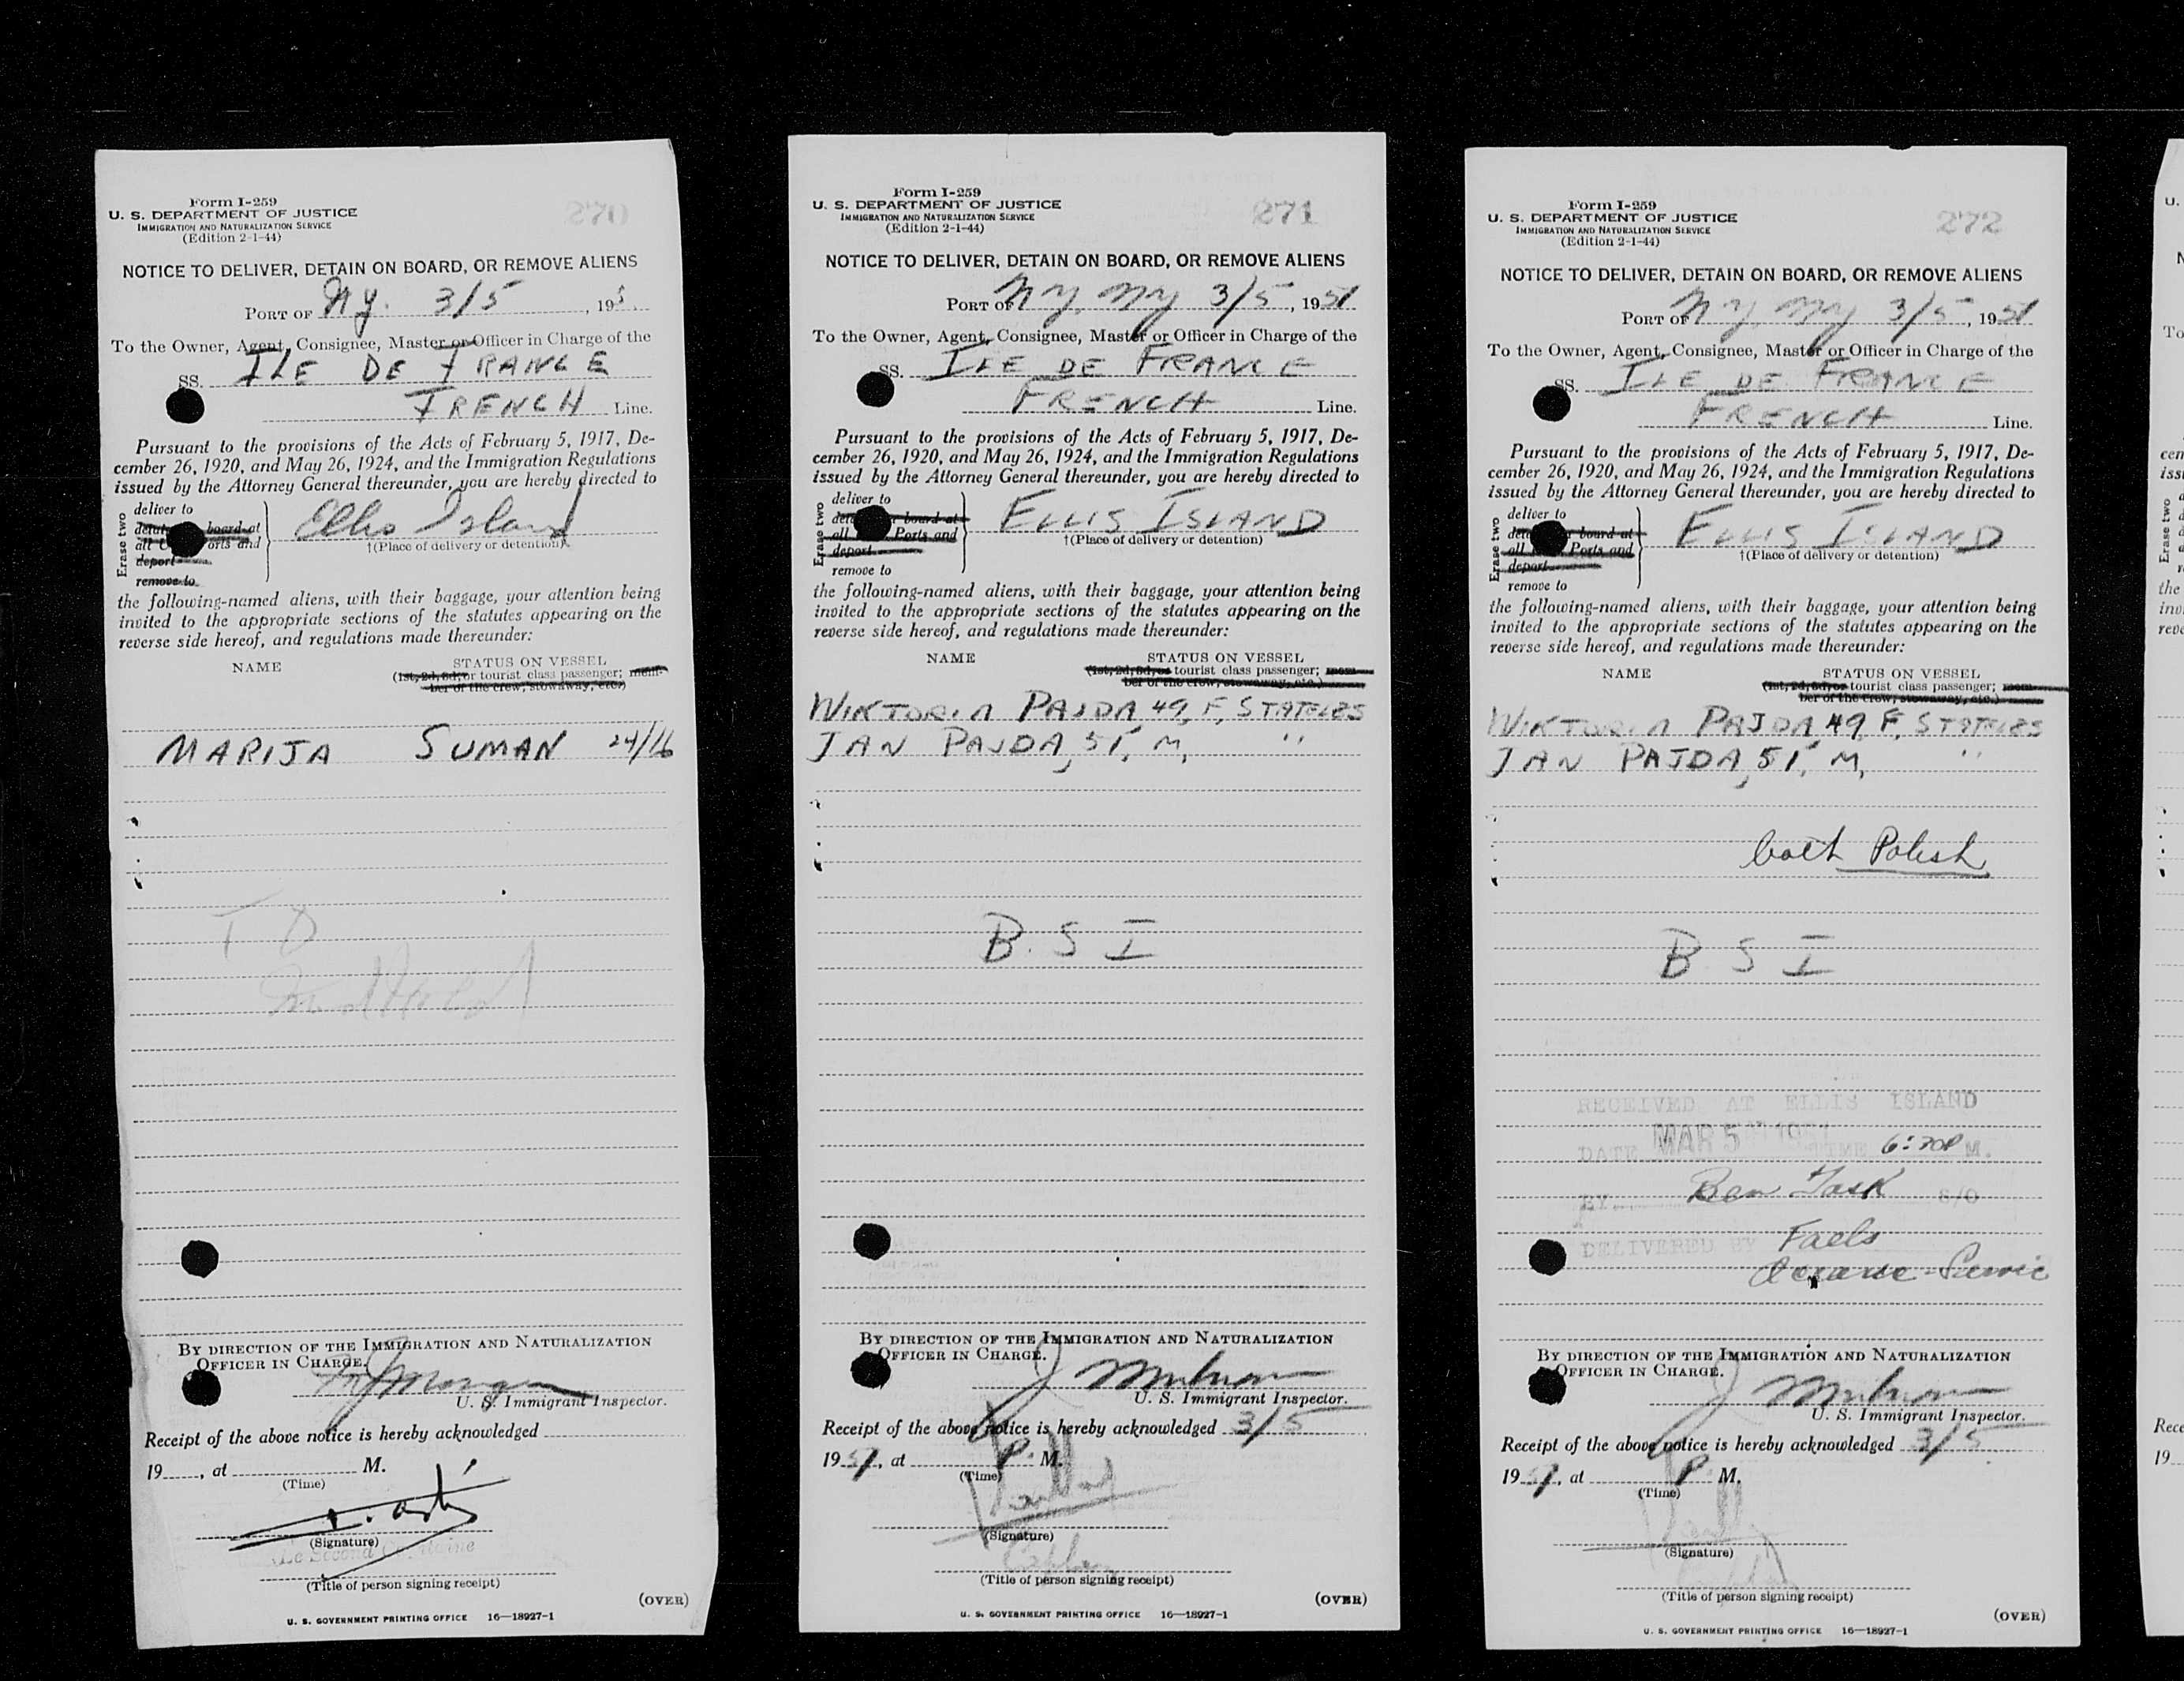 Form I-259
U. S. DEPARTMENT OF JUSTICE
IMMIGRATION AND NATURALIZATION SERVICE
(Edition 2-1-44)
270
NOTICE TO DELIVER, DETAIN ON BOARD, OR REMOVE ALIENS
PORT OF N.Y. 3/5, 195
To the Owner, Agent, Consignee, Master or Officer in Charge of the
SS. ILE DE FRANCE
FRENCH Line.
Pursuant to the provisions of the Acts of February 5, 1917, De-
cember 26, 1920, and May 26, 1924, and the Immigration Regulations
issued by the Attorney General thereunder, you are hereby directed to
Erase two
deliver to
board at
all orts and
deport
remove to
Ellis Island
†(Place of delivery or detention)
the following-named aliens, with their baggage, your attention being
invited to the appropriate sections of the statutes appearing on the
reverse side hereof, and regulations made thereunder:
NAME STATUS ON VESSEL
(1st, 2d, 3d, or tourist class passenger; mem-
ber of the crew, stowaway, etc.)
MARIJA SUMAN 24/16
T D
BY DIRECTION OF THE IMMIGRATION AND NATURALIZATION
OFFICER IN CHARGE.
U. S. Immigrant Inspector.
Receipt of the above notice is hereby acknowledged
19 , at M.
(Time)
(Signature)
Le Second Capitaine
(Title of person signing receipt)
(OVER)
U. S. GOVERNMENT PRINTING OFFICE 16—18927-1
Form I-259
U. S. DEPARTMENT OF JUSTICE
IMMIGRATION AND NATURALIZATION SERVICE
(Edition 2-1-44)
271
NOTICE TO DELIVER, DETAIN ON BOARD, OR REMOVE ALIENS
PORT OF N Y, N Y 3/5, 1951
To the Owner, Agent, Consignee, Master or Officer in Charge of the
SS. ILE DE FRANCE
FRENCH Line.
Pursuant to the provisions of the Acts of February 5, 1917, De-
cember 26, 1920, and May 26, 1924, and the Immigration Regulations
issued by the Attorney General thereunder, you are hereby directed to
Erase two
deliver to
board at
all Ports and
deport
remove to
ELLIS ISLAND
†(Place of delivery or detention)
the following-named aliens, with their baggage, your attention being
invited to the appropriate sections of the statutes appearing on the
reverse side hereof, and regulations made thereunder:
NAME STATUS ON VESSEL
(1st, 2d, 3d, or tourist class passenger; mem-
ber of the crew, stowaway, etc.)
WIKTORIA PAJDA 49, F, STATELES
JAN PAJDA, 51, M, "
B. S I
BY DIRECTION OF THE IMMIGRATION AND NATURALIZATION
OFFICER IN CHARGE.
U. S. Immigrant Inspector.
Receipt of the above notice is hereby acknowledged 3/5
1951, at P. M.
(Time)
(Signature)
(Title of person signing receipt)
(OVER)
U. S. GOVERNMENT PRINTING OFFICE 16—18927-1
Form I-259
U. S. DEPARTMENT OF JUSTICE
IMMIGRATION AND NATURALIZATION SERVICE
(Edition 2-1-44)
272
NOTICE TO DELIVER, DETAIN ON BOARD, OR REMOVE ALIENS
PORT OF N Y, N Y 3/5, 1951
To the Owner, Agent, Consignee, Master or Officer in Charge of the
SS. ILE DE FRANCE
FRENCH Line.
Pursuant to the provisions of the Acts of February 5, 1917, De-
cember 26, 1920, and May 26, 1924, and the Immigration Regulations
issued by the Attorney General thereunder, you are hereby directed to
Erase two
deliver to
board at
all Ports and
deport
remove to
ELLIS ISLAND
†(Place of delivery or detention)
the following-named aliens, with their baggage, your attention being
invited to the appropriate sections of the statutes appearing on the
reverse side hereof, and regulations made thereunder:
NAME STATUS ON VESSEL
(1st, 2d, 3d, or tourist class passenger; mem-
ber of the crew, stowaway, etc.)
WIKTORIA PAJDA 49, F, STATELES
JAN PAJDA, 51, M, "
both Polish
B S I
RECEIVED AT ELLIS ISLAND
DATE MAR 5 1951 TIME 6:30P M.
BY Ben Task S/O
DELIVERED BY Faels
BY DIRECTION OF THE IMMIGRATION AND NATURALIZATION
OFFICER IN CHARGE.
U. S. Immigrant Inspector.
Receipt of the above notice is hereby acknowledged 3/5
1951, at P M.
(Time)
(Signature)
(Title of person signing receipt)
(OVER)
U. S. GOVERNMENT PRINTING OFFICE 16—18927-1